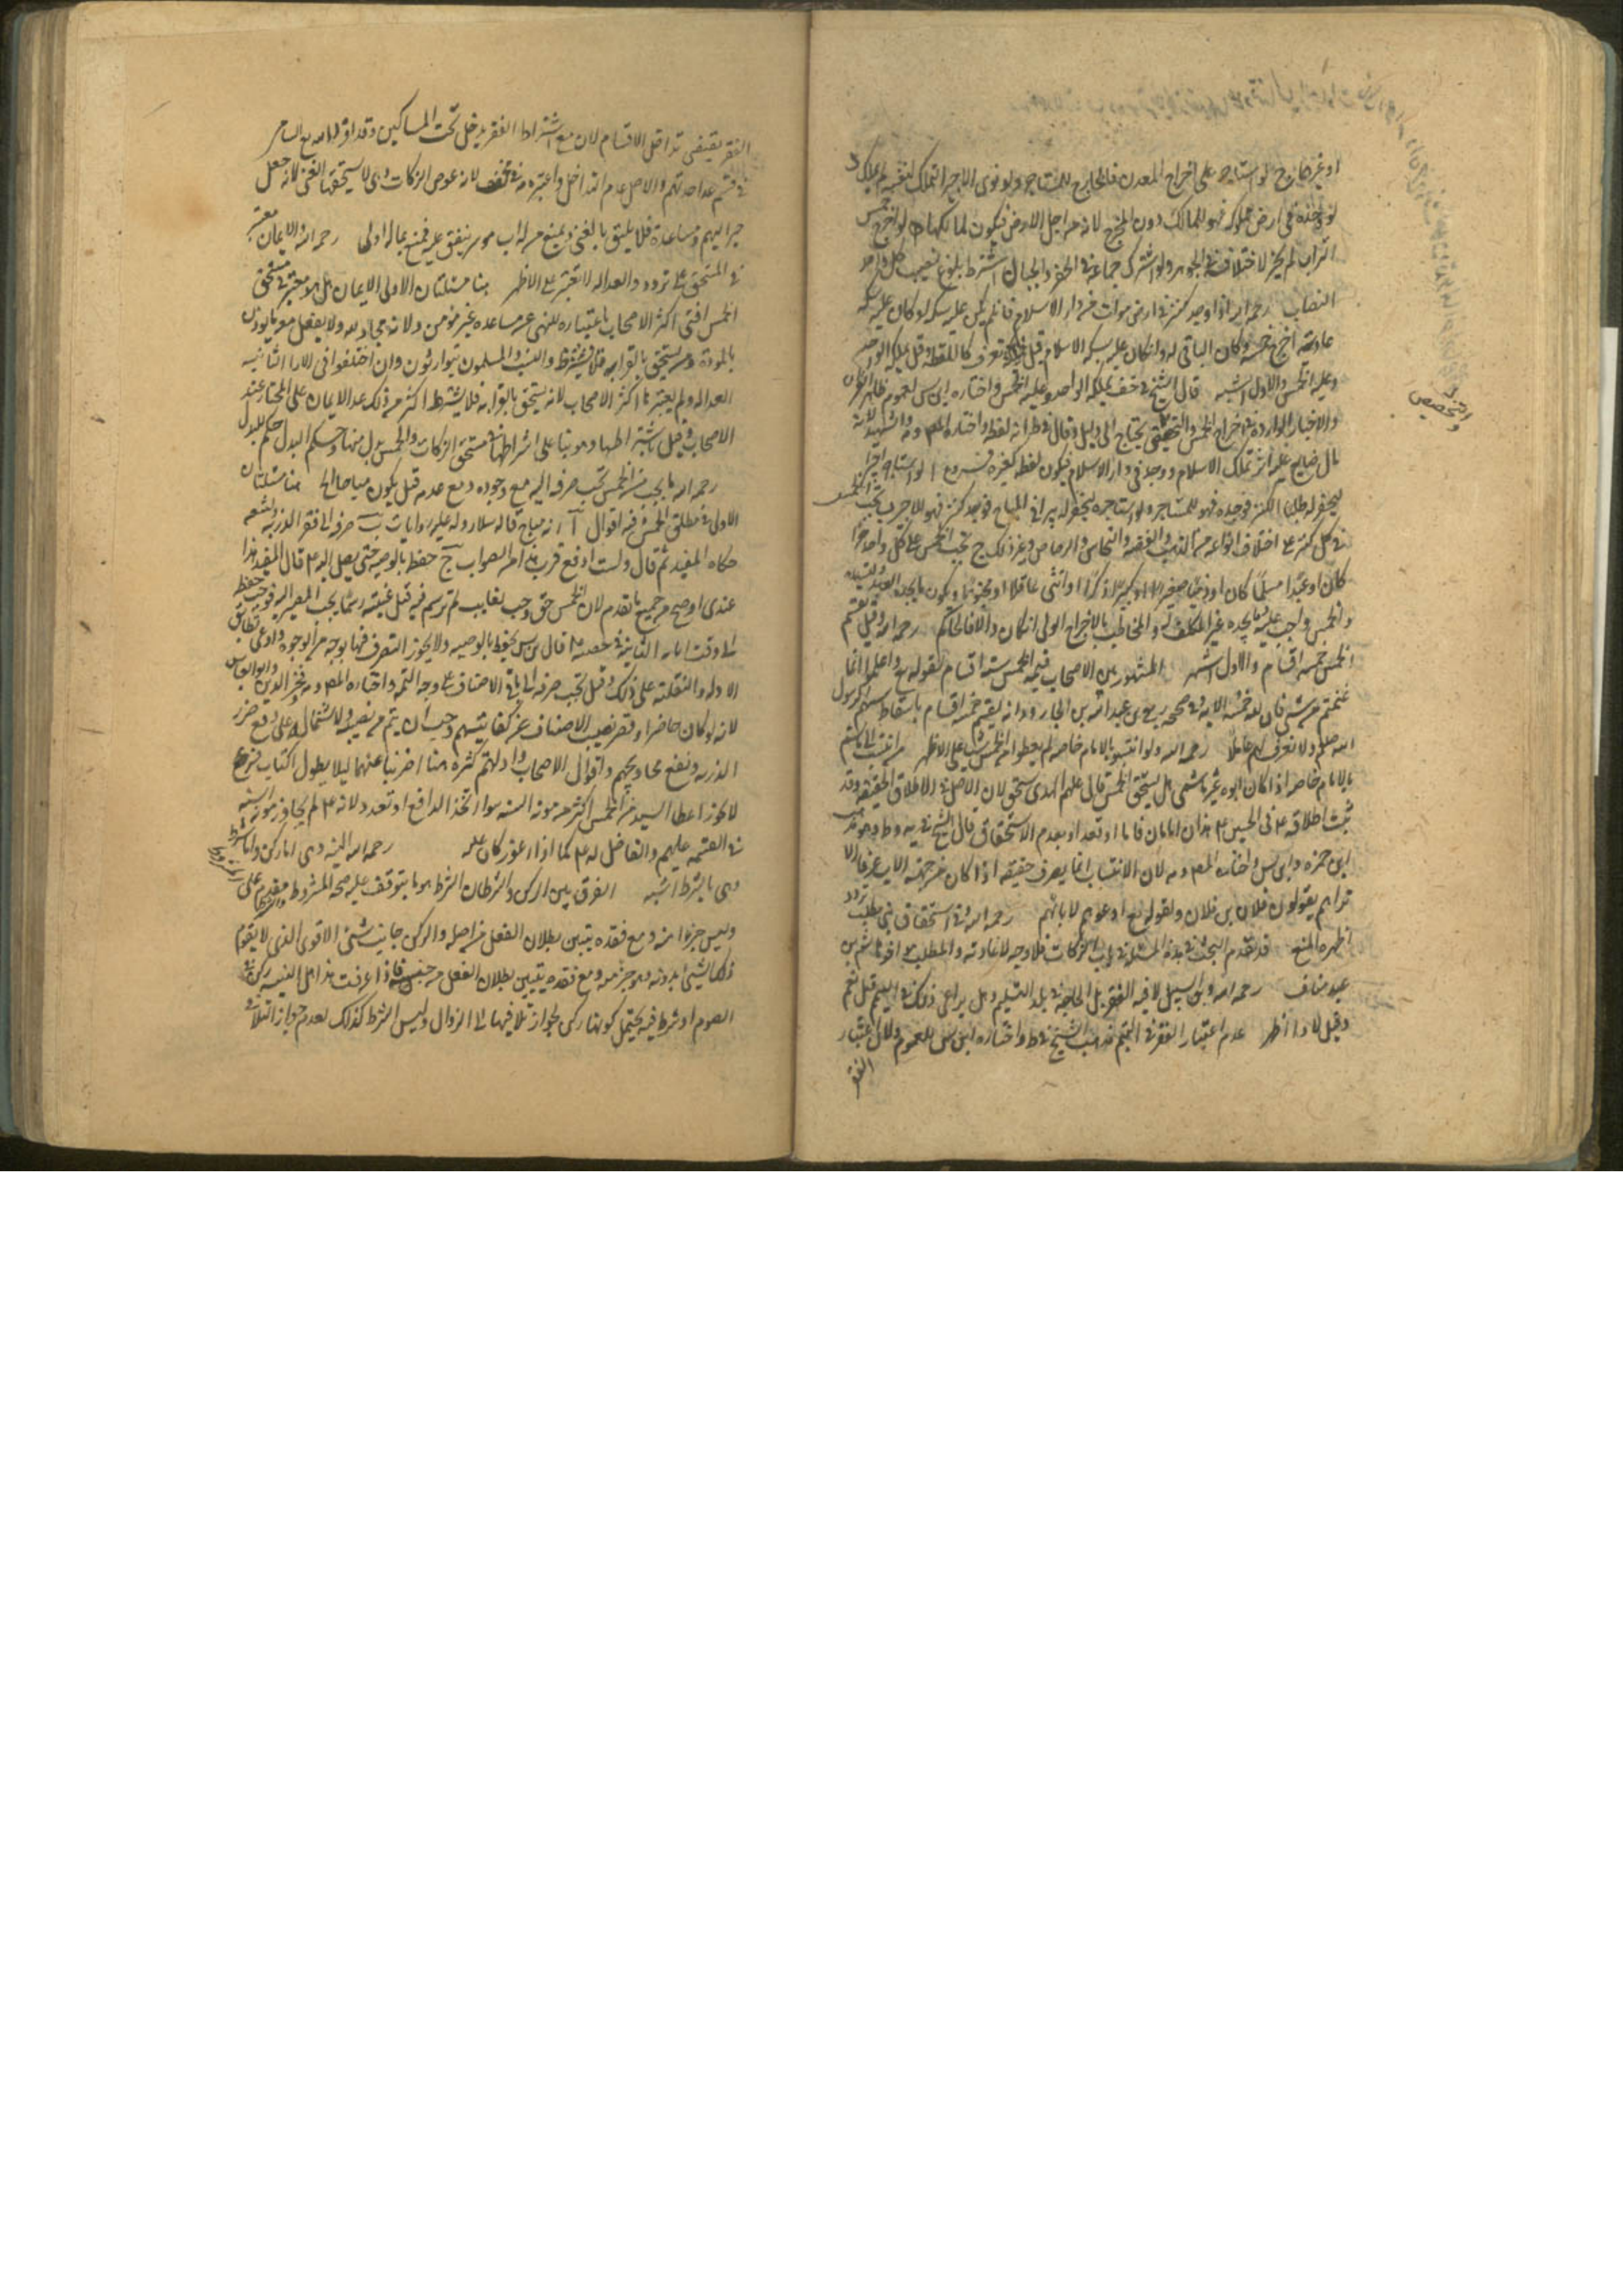 او غيرها زوج لو استاجر على اخراج المعدن فالخارج للمستاجر ولو نوى الاجير التملك لنفسه لم يملك
في ارض مملوكه فهو للمالك دون المخرج لانه من اجل الارض فيكون لمالكها لو اخرج خمس
التراب لم يجز لاختلافه في الجوهر ولو اشترك جماعة في الحفر والحيازة اشترط بلوغ نصيب كل واحد
النصاب رحمه الله اذا وجد كنزا في ارض موات من دار الاسلام فان لم يكن عليه سكه او كان عليه سكه
عاديه اخرج خمسه وكان الباقي له وان كان عليه سكه الاسلام قيل يعرف كاللقطه وقيل يملكه الواجد
وعليه الخمس والاول اشبه قال الشيخ في خف يملكه الواجد وعليه الخمس واختاره ابن س لعموم ظاهر القران
والاخبار الواردة في اخراج الخمس والتخصيص يحتاج الى دليل وقال في ط انه لقطه واختاره المص والشهيد لانه
مال ضايع عليه اثر تملك الاسلام ووجد في دار الاسلام فيكون لقطه كغيره فروع ا لو استاجر اجيرا
ليحفر له طلبا لكنز فوجده فهو للمستاجر ولو استاجره ليحفر له بيرا في المباح فوجد كنزا فهو للاجير ب تجب الخمس
في كل كنز على اختلاف انواعه من الذهب والفضه والنحاس والرصاص وغير ذلك ج تجب الخمس على كل واحد حرا
كان او عبدا مسلما كان او ذميا صغيرا او كبيرا ذكرا او انثى عاقلا او مجنونا ويكون ما يجده العبد لسيده
والخمس واجب عليه فيما يجده غير المكلف والمخاطب بالاخراج الولي ان كان والا فالحاكم رحمه الله وقيل يقسم
الخمس خمسه اقسام والاول اشهر المشهور بين الاصحاب قسمة الخمس ستة اقسام لقوله تع واعلموا انما
غنمتم من شي فان لله خمسه الايه وفي صحيحه ربعي بن عبد الله بن الجارود انه يقسم خمسة اقسام باسقاط سهم الرسول
الله صلعم ولا نعرف له عاملا رحمه الله ولو انتسبوا بالام خاصه لم يعطوا من الخمس شي على الاظهر من انتسب الى هاشم
بالام خاصه اذا كان ابوه غير هاشمي هل يستحق الخمس قال علم الهدى يستحق لان الاصل في الاطلاق الحقيقه وقد
ثبت اطلاقه ع في الحسين ع هذان ابنان امامان قاما او قعدا وبعدم الاستحقاق قال الشيخ في يه وط وهو مذهب
ابن حمزه وابن س واختاره المص لان الانتساب انما يصرف حقيقه اذا كان من جهه الاب عرفا الا
تراهم يقولون فلان بن فلان ولقوله تع ادعوهم لابائهم رحمه الله وفي استحقاق بني المطلب تردد
اظهره المنع قد تقدم البحث في هذه المسئلة في باب الزكات فلا وجه لاعادته والمطلب هو اخو هاشم بن
عبد مناف رحمه الله وابن السبيل لا فيه الفقر بل الحاجه في بلد التسليم وهل يراعى ذلك في اليتيم قيل نعم
وقيل لا والاول اظهر عدم اعتبار الفقر في اليتيم مذهب الشيخ في ط واختاره ابن س للعموم ولان اعتبار
الفقر
الفقر يقتضي تداخل الاقسام لان مع اشتراط الفقر يدخل تحت المساكين وقد
في قسم عداهم والاصل عدم التداخل واعتبره في خف لانه عوض الزكات وهي لا يستحقها الغني لانه جعل
جبرا لهم ومساعدة فلا يليق بالغني ويمنع من له اب موسر ينفق عليه فمنعه بماله اولى رحمه الله والايمان معتبر
في المستحق على تردد والعداله لا تعتبر على الاظهر هنا مسئلتان الاولى الايمان هل هو معتبر في مستحق
الخمس افتى اكثر الاصحاب باعتباره للنهي عن مساعده غير مؤمن ولانه محاد لله ولا يفعل معه ما يوذن
بالمودة ومن يستحق بالقرابه فلا يشترط والنسب والمسلمون يتوارثون وان اختلفوا في الاراء الثانيه
العداله ولم يعتبرها اكثر الاصحاب لانه يستحق بالقرابه فلا يشترط اكثر من ذلك عدا الايمان على المختار عند
الاصحاب وقيل باشتراطها وهو بناء على اشتراطها في مستحق الزكات والخمس بدل منها وحكم البدل حكم المبدل
رحمه الله ما يجب من الخمس تجب صرفه اليه مع وجوده ومع عدمه قيل يكون مباحا الخ هنا مسئلتان
الاولى في مطلق الخمس وفيه اقوال ا انه مباح قاله سلار وله عليه روايات ب صرفه الى فقراء الذريه والشيعه
حكاه المفيد ثم قال ولست ادفع قرب هذا من الصواب ج حفظه بالوصيه حتى يصل اليه ع قال المفيد هذا
عندي اوضح من جميع ما تقدم لان الخمس حق وجب لغايب لم يرسم فيه قبل غيبته رسما يجب المصير اليه فوجب حفظه
الى وقت ايابه الثانيه في حصته ع قال ابن س يحفظ بالوصيه ولا يجوز التصرف فيها بوجه من الوجوه وادعى تطابق
الادله والعقليه على ذلك وقيل تجب صرفه الى باقي الاصناف على وجه التتمه واختاره المص وفخر الدين وابو العباس
لانه لو كان حاضرا وقصر نصيب الاصناف عن كفايتهم وجب ان يتم من نصيبه ولاشتماله على دفع ضرر
الذريه ونفع محاويجهم واقوال الاصحاب وادلتهم كثره هنا اضربنا عنهما ليلا يطول الكتاب فرع
لا يجوز اعطا السيد من الخمس اكثر من مونه السنه سوا اتحد الدافع او تعدد لانه ع لم يجاوز مونه السنه
في القسمه عليهم والفاضل له ع كما اذا اعوز كان عليه رحمه الله النيه وهي اما ركن واما شرط
وهي بالشرط اشبه الفرق بين الركن والشرط ان الشرط هو ما يتوقف عليه صحه المشروط مقدم على
وليس جزءا منه ومع فقده يتبين بطلان الفعل من اصله والركن جانب شئ الاقوى الذي لا يقوم
ذلك الشي بدونه وهو جزء منه ومع فقده يتبين بطلان الفعل من حينه فاذا عرفت هذا هل النيه ركن في
الصوم او شرط فيه يحتمل كونها ركن لجواز تلافيها الى الزوال وليس الشرط كذلك لعدم جواز